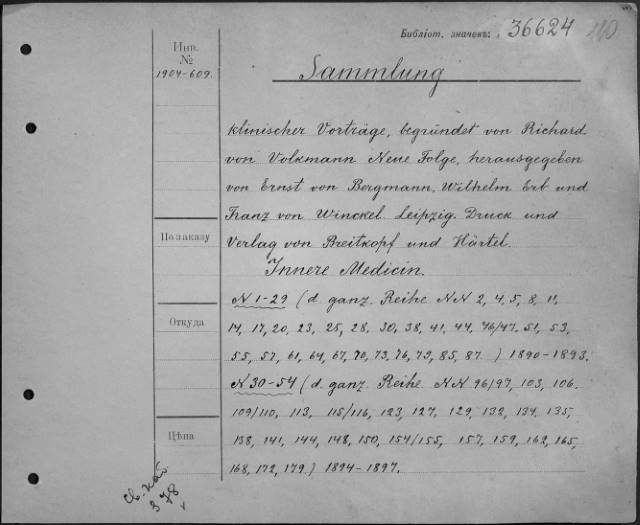 Библiот. значекъ: 36624 40
Инв. №
1904-609.
Sammlung
klinischer Vorträge, begründet von Richard
von Volkmann Neue Folge, herausgegeben
von Ernst von Bergmann, Wilhelm Erb und
Franz von Winckel. Leipzig. Druck und
Verlag von Breitkopf und Härtel.
По заказу
Innere Medicin.
N 1-29 (d. ganz. Reihe NN 2, 4, 5, 8, 11,
Откуда
14, 17, 20, 23, 25, 28, 30, 38, 41, 44, 46/47, 51, 53,
55, 57, 61, 64, 67, 70, 73, 76, 79, 85, 87.) 1890-1893.
N 30-54 (d. ganz. Reihe NN 96/97, 103, 106.
109/110, 113, 115/116, 123, 127, 129, 132, 134, 135,
Цѣна
138, 141, 144, 148, 150, 154/155, 157, 159, 162, 165,
168, 172, 179.) 1894-1897.
св. каб.
3 78